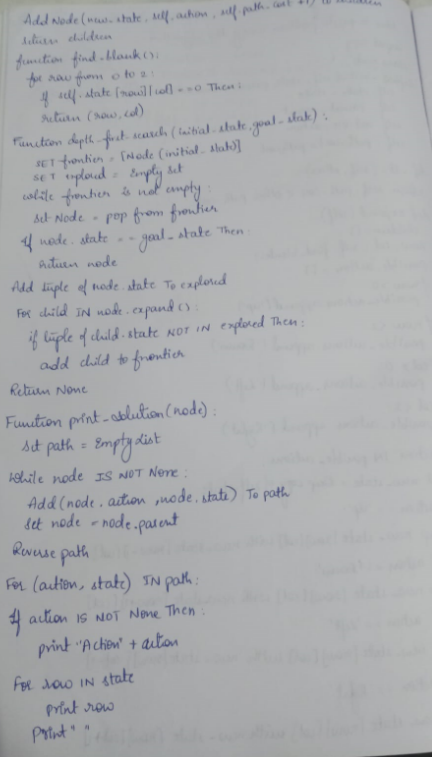 Add Node (new_state, self, action, self.path_cost +1) to children
return children
function find_blank ():
for row from 0 to 2:
If self.state [row][col] == 0 Then:
return (row, col)
Function depth_first_search (initial_state, goal_state):
SET frontier = [Node (initial_state)]
SET explored = Empty set
while frontier is not empty:
Set Node = pop from frontier
If node.state == goal_state Then:
Return node
Add tuple of node.state To explored
For child IN node.expand ():
if tuple of child.state NOT IN explored Then:
add child to frontier
Return None
Function print_solution (node):
Set path = Empty list
While node IS NOT None:
Add (node.action, node.state) To path
Set node = node.parent
Reverse path
For (action, state) IN path:
If action IS NOT None Then:
print "Action" + action
For row IN state
print row
print " "